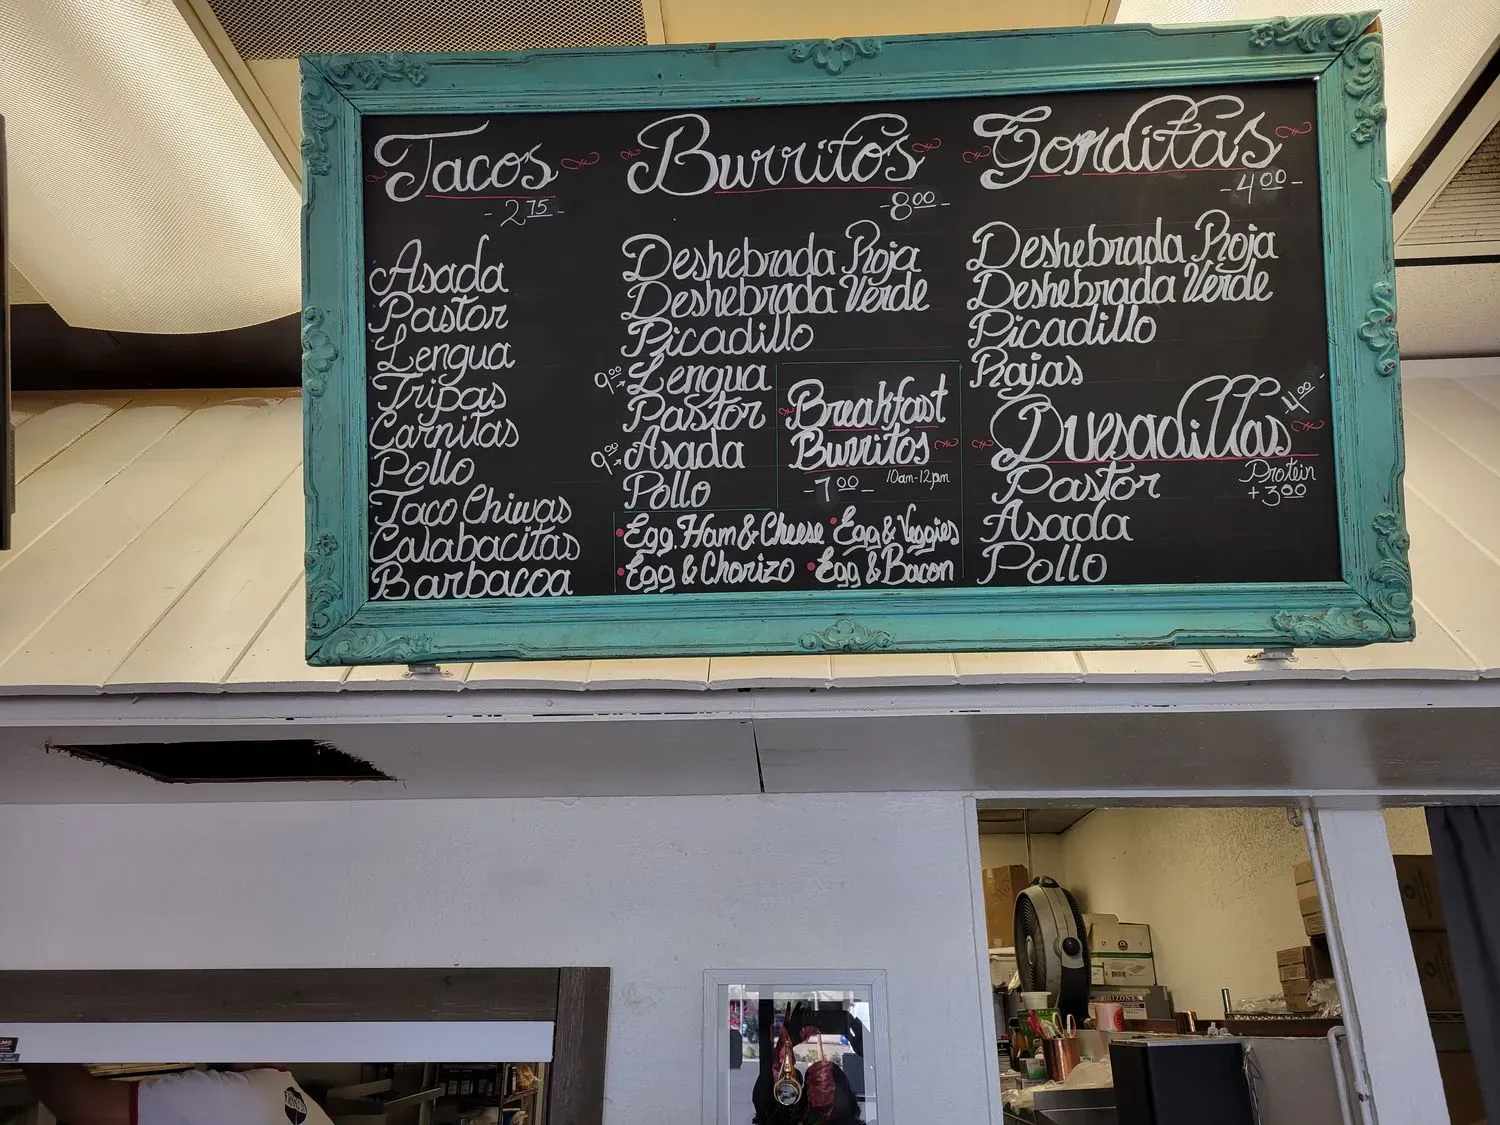 Tacos
- 2 75 -
Asada
Pastor
Lengua
Tripas
Carnitas
Pollo
Taco Chiwas
Calabacitas
Barbacoa
Burritos
- 8 00 -
Deshebrada Roja
Deshebrada Verde
Picadillo
9 00 → Lengua
Pastor
9 00 → Asada
Pollo
Breakfast
Burritos
- 7 00 - 10am-12pm
• Egg, Ham & Cheese • Egg & Veggies
• Egg & Chorizo • Egg & Bacon
Gorditas
- 4 00 -
Deshebrada Roja
Deshebrada Verde
Picadillo
Rajas
Quesadillas 4 00 -
Protein
+ 3 00
Pastor
Asada
Pollo